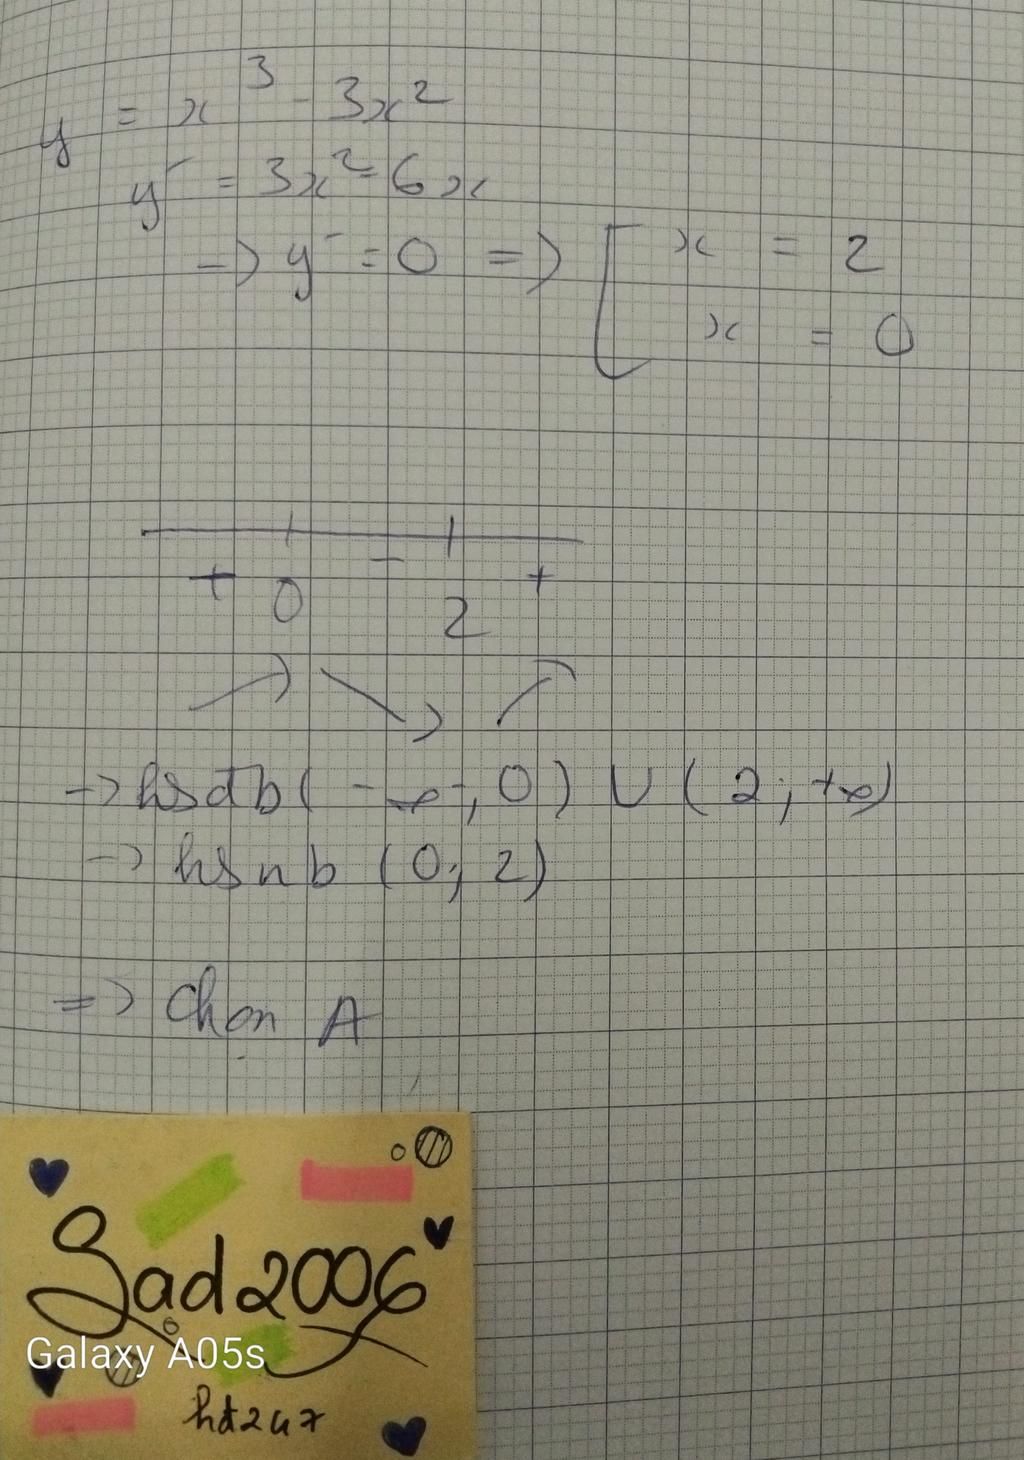 y = x³ - 3x²
y' = 3x² - 6x
-> y' = 0 => [ x = 2
x = 0
+ 0 - 2 +
-> hsđb (-∞; 0) U (2; +∞)
-> hsnb (0; 2)
=> Chọn A
Sad2006
Galaxy A05s
hd247